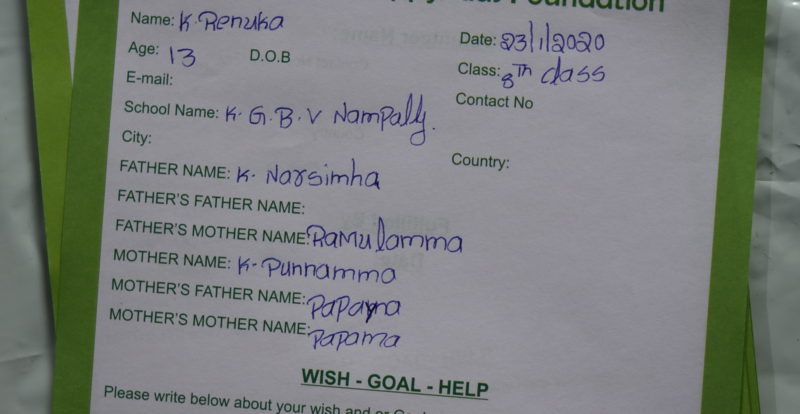 Foundation
Name: K. Renuka
Date: 23/1/2020
Age: 13 D.O.B
Class: 8th class
E-mail:
Contact No
School Name: K. G. B. V Nampally.
City:
Country:
FATHER NAME: K. Narsimha
FATHER'S FATHER NAME:
FATHER'S MOTHER NAME: Ramulamma
MOTHER NAME: K. Punnamma
MOTHER'S FATHER NAME: Papayya
MOTHER'S MOTHER NAME: Papama
WISH - GOAL - HELP
Please write below about your wish and or